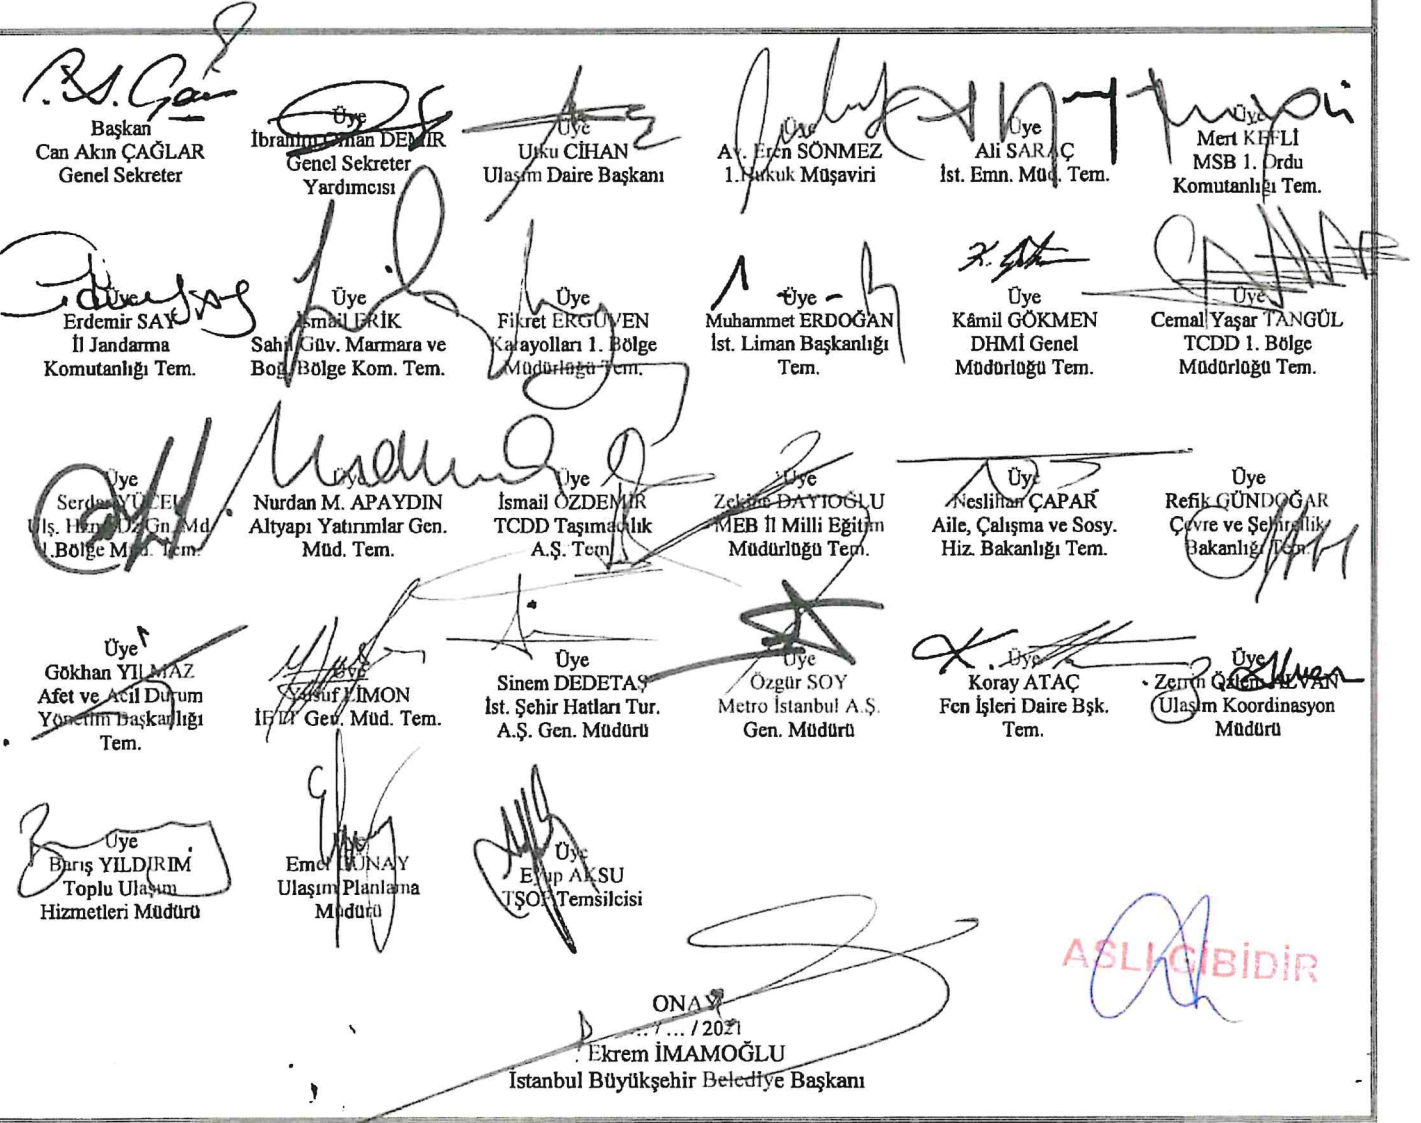 Başkan
Can Akın ÇAĞLAR
Genel Sekreter
Üye
İbrahim Orhan DEMİR
Genel Sekreter
Yardımcısı
Üye
Utku CİHAN
Ulaşım Daire Başkanı
Üye
Av. Eren SÖNMEZ
1.Hukuk Müşaviri
Üye
Ali SARAÇ
İst. Emn. Müd. Tem.
Üye
Mert KEFLİ
MSB 1. Ordu
Komutanlığı Tem.
Üye
Erdemir SAY
İl Jandarma
Komutanlığı Tem.
Üye
İsmail ERİK
Sahil Güv. Marmara ve
Boğ. Bölge Kom. Tem.
Üye
Fikret ERGÜVEN
Karayolları 1. Bölge
Müdürlüğü Tem.
Üye
Muhammet ERDOĞAN
İst. Liman Başkanlığı
Tem.
K.
Üye
Kâmil GÖKMEN
DHMİ Genel
Müdürlüğü Tem.
Üye
Cemal Yaşar TANGÜL
TCDD 1. Bölge
Müdürlüğü Tem.
Üye
Serdar YÜCEL
Ulş. Hizm. Dz. Gn. Md.
1.Bölge Müd. Tem.
Üye
Nurdan M. APAYDIN
Altyapı Yatırımlar Gen.
Müd. Tem.
Üye
İsmail ÖZDEMİR
TCDD Taşımacılık
A.Ş. Tem.
Üye
Zekine DAYIOĞLU
MEB İl Milli Eğitim
Müdürlüğü Tem.
Üye
Neslihan ÇAPAR
Aile, Çalışma ve Sosy.
Hiz. Bakanlığı Tem.
Üye
Refik GÜNDOĞAR
Çevre ve Şehircilik
Bakanlığı Tem.
Üye
Gökhan YILMAZ
Afet ve Acil Durum
Yönetim Başkanlığı
Tem.
Üye
Yusuf LİMON
İETT Gen. Müd. Tem.
Üye
Sinem DEDETAŞ
İst. Şehir Hatları Tur.
A.Ş. Gen. Müdürü
Üye
Özgür SOY
Metro İstanbul A.Ş.
Gen. Müdürü
K.
Üye
Koray ATAÇ
Fen İşleri Daire Bşk.
Tem.
Üye
Zerrin Özlem ALVAN
Ulaşım Koordinasyon
Müdürü
Üye
Barış YILDIRIM
Toplu Ulaşım
Hizmetleri Müdürü
Üye
Emel GÜNAY
Ulaşım Planlama
Müdürü
Üye
Eyup AKSU
TŞOF Temsilcisi
ASLI GİBİDİR
ONAY
... / ... / 2021
Ekrem İMAMOĞLU
İstanbul Büyükşehir Belediye Başkanı